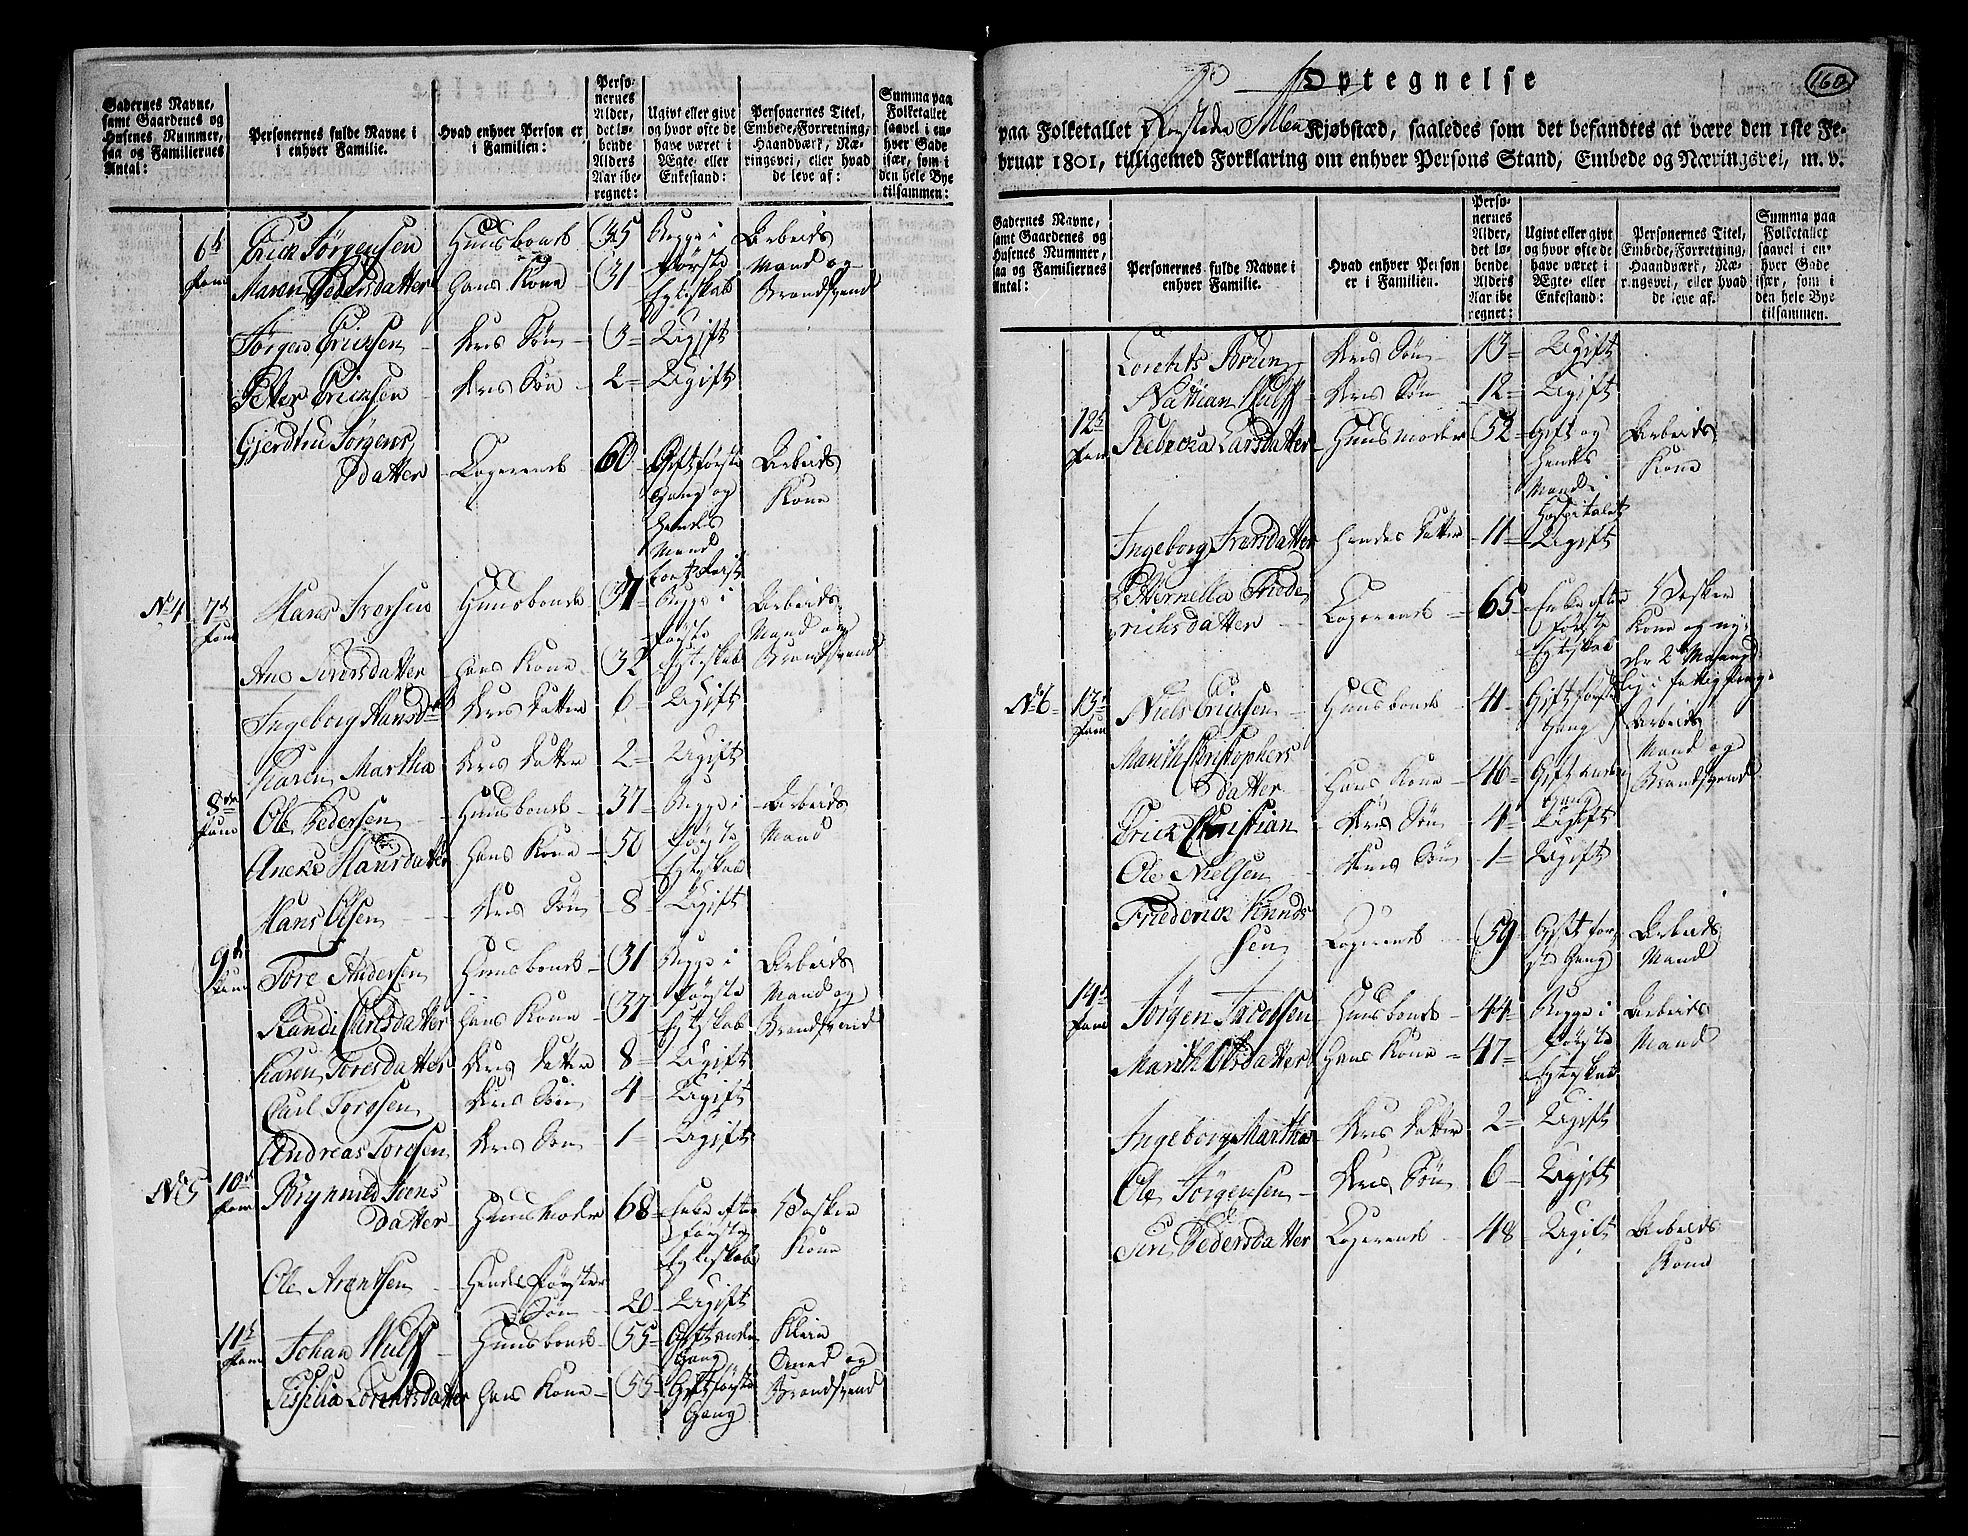 Gadernes Navne,
samt Gaardenes og
Husenes Nummer,
saa og Familiernes
Antal:
Personernes fulde Navne i
i enhver Familie.
Hvad enhver Person er
i Familien:
Perso-
nernes
Alder,
det lø-
bende
Alders
Aar ibe-
regnet:
Ugivt eller givt
og hvor ofte de
have været i
Ægte- eller
Enkestand:
Personernes Titel,
Embede, Forretning,
Haandværk, Næ-
ringsvei, eller hvad
de leve af:
Summa paa
Folketallet
saavel i en-
hver Gade
især, som i
den hele Bye
tilsammen:
6te Fam Erick Jørgensen Huusbonde 35 Begge i Arbeids
Maren Pedersdatter Hans Kone 31 første Mand og
Egteskab Brandsvend
Jørgen Ericksen Deres Søn 3 Ugift
Petter Ericksen Deres Søn 2 Ugift
Gjerdtru Jørgens
datter Logerende 60 Gift første Arbeids
Gang og Kone
hendes
Mand
No 4 7de Fam Hans Iversen Huusbonde 37 Begge i Arbeids
første Mand og
Ane Siversdatter Hans Kone 32 Egteskab Brandsvend
Ingeborg Hansdr Deres Datter 6 Ugift
Karen Martha Deres Datter 2 Ugift
8de Fam Ole Pedersen Huusbonde 37 Begge i Arbeids
Ancke Hansdatter Hans Kone 50 første Mand
Egteskab
Hans Olsen Deres Søn 8 Ugift
9de Fam Tore Andersen Huusbonde 31 Begge i Arbeids
Randi Carlsdatter Hans Kone 37 første Mand og
Egteskab Brandsvend
Karen Toresdatter Deres Datter 8 Ugift
Carl Torgsen Deres Søn 4 Ugift
Andreas Toresen Deres Søn 1 Ugift
No 5 10de Fam Brynnild Joens
datter Huus Moder 68 Enke efter Vasker
første Kone
Egteskab
Ole Arentsen Hendes første
Søn 20 Ugift
11te Fam Johan Wulf Huusbonde 55 Gift anden Klein
Gang Smed og
Sissilia Lorentsdatter Hans Kone 55 Gift første Brandsvend
Gang
160
Optegnelse
paa Folketallet i Kjøbstæd, saaledes som det befandtes at være den 1ste Fe-
bruar 1801, tilligemed Forklaring om enhver Persons Stand, Embede og Næringsvei, m. v.
Gadernes Navne,
samt Gaardenes og
Husenes Nummer,
saa og Familiernes
Antal:
Personernes fulde Navne i
enhver Familie.
Hvad enhver Person
er i Familien.
Perso-
nernes
Alder,
det lø-
bende
Alders
Aar ibe
regnet:
Ugivt eller givt
og hvor ofte de
have været i
Ægte- eller
Enkestand:
Personernes Titel,
Embede, Forretning,
Haandværk, Næ-
ringsvei, eller hvad
de leve af.
Summa paa
Folketallet
saavel i en-
hver Gade
især, som i
den hele Bye
tilsammen.
Lorents Bruun Deres Søn 13 Ugift
Nathan Wulf Deres Søn 12 Ugift
12te Fam Rebecka Larsdatter Huusmoder 52 Gift og Arbeids
hendes Kone
Mand i
Hospitalet
Ingeborg Iversdatter Hendes Datter 11 Ugift
Petternella Friede
richsdatter Logerende 65 Enke efter Vasker
første Kone og ny-
Egteskab der
No 6 13de Fam Niels Ericksen Huusbonde 41 Gift første
Gang Arbeids
Marith Christophers Mand og
datter Hans Kone 46 Gift anden Brandsvend
Gang
Erick Christian Deres Søn 4 Ugift
Ole Nielsen Deres Søn 1 Ugift
Friederick Knud
sen Logerende 59 Gift før Arbeids
ste Gang Mand
14de Fam Jørgen Jacobsen Huusbonde 44 Begge i Arbeids
Marith Olsdatter Hans Kone 47 første Mand
Egteskab
Ingeborg Martha Deres Datter 2 Ugift
Ole Jørgensen Deres Søn 6 Ugift
Siri Pedersdatter Logerende 48 Ugift Arbeids
Kone